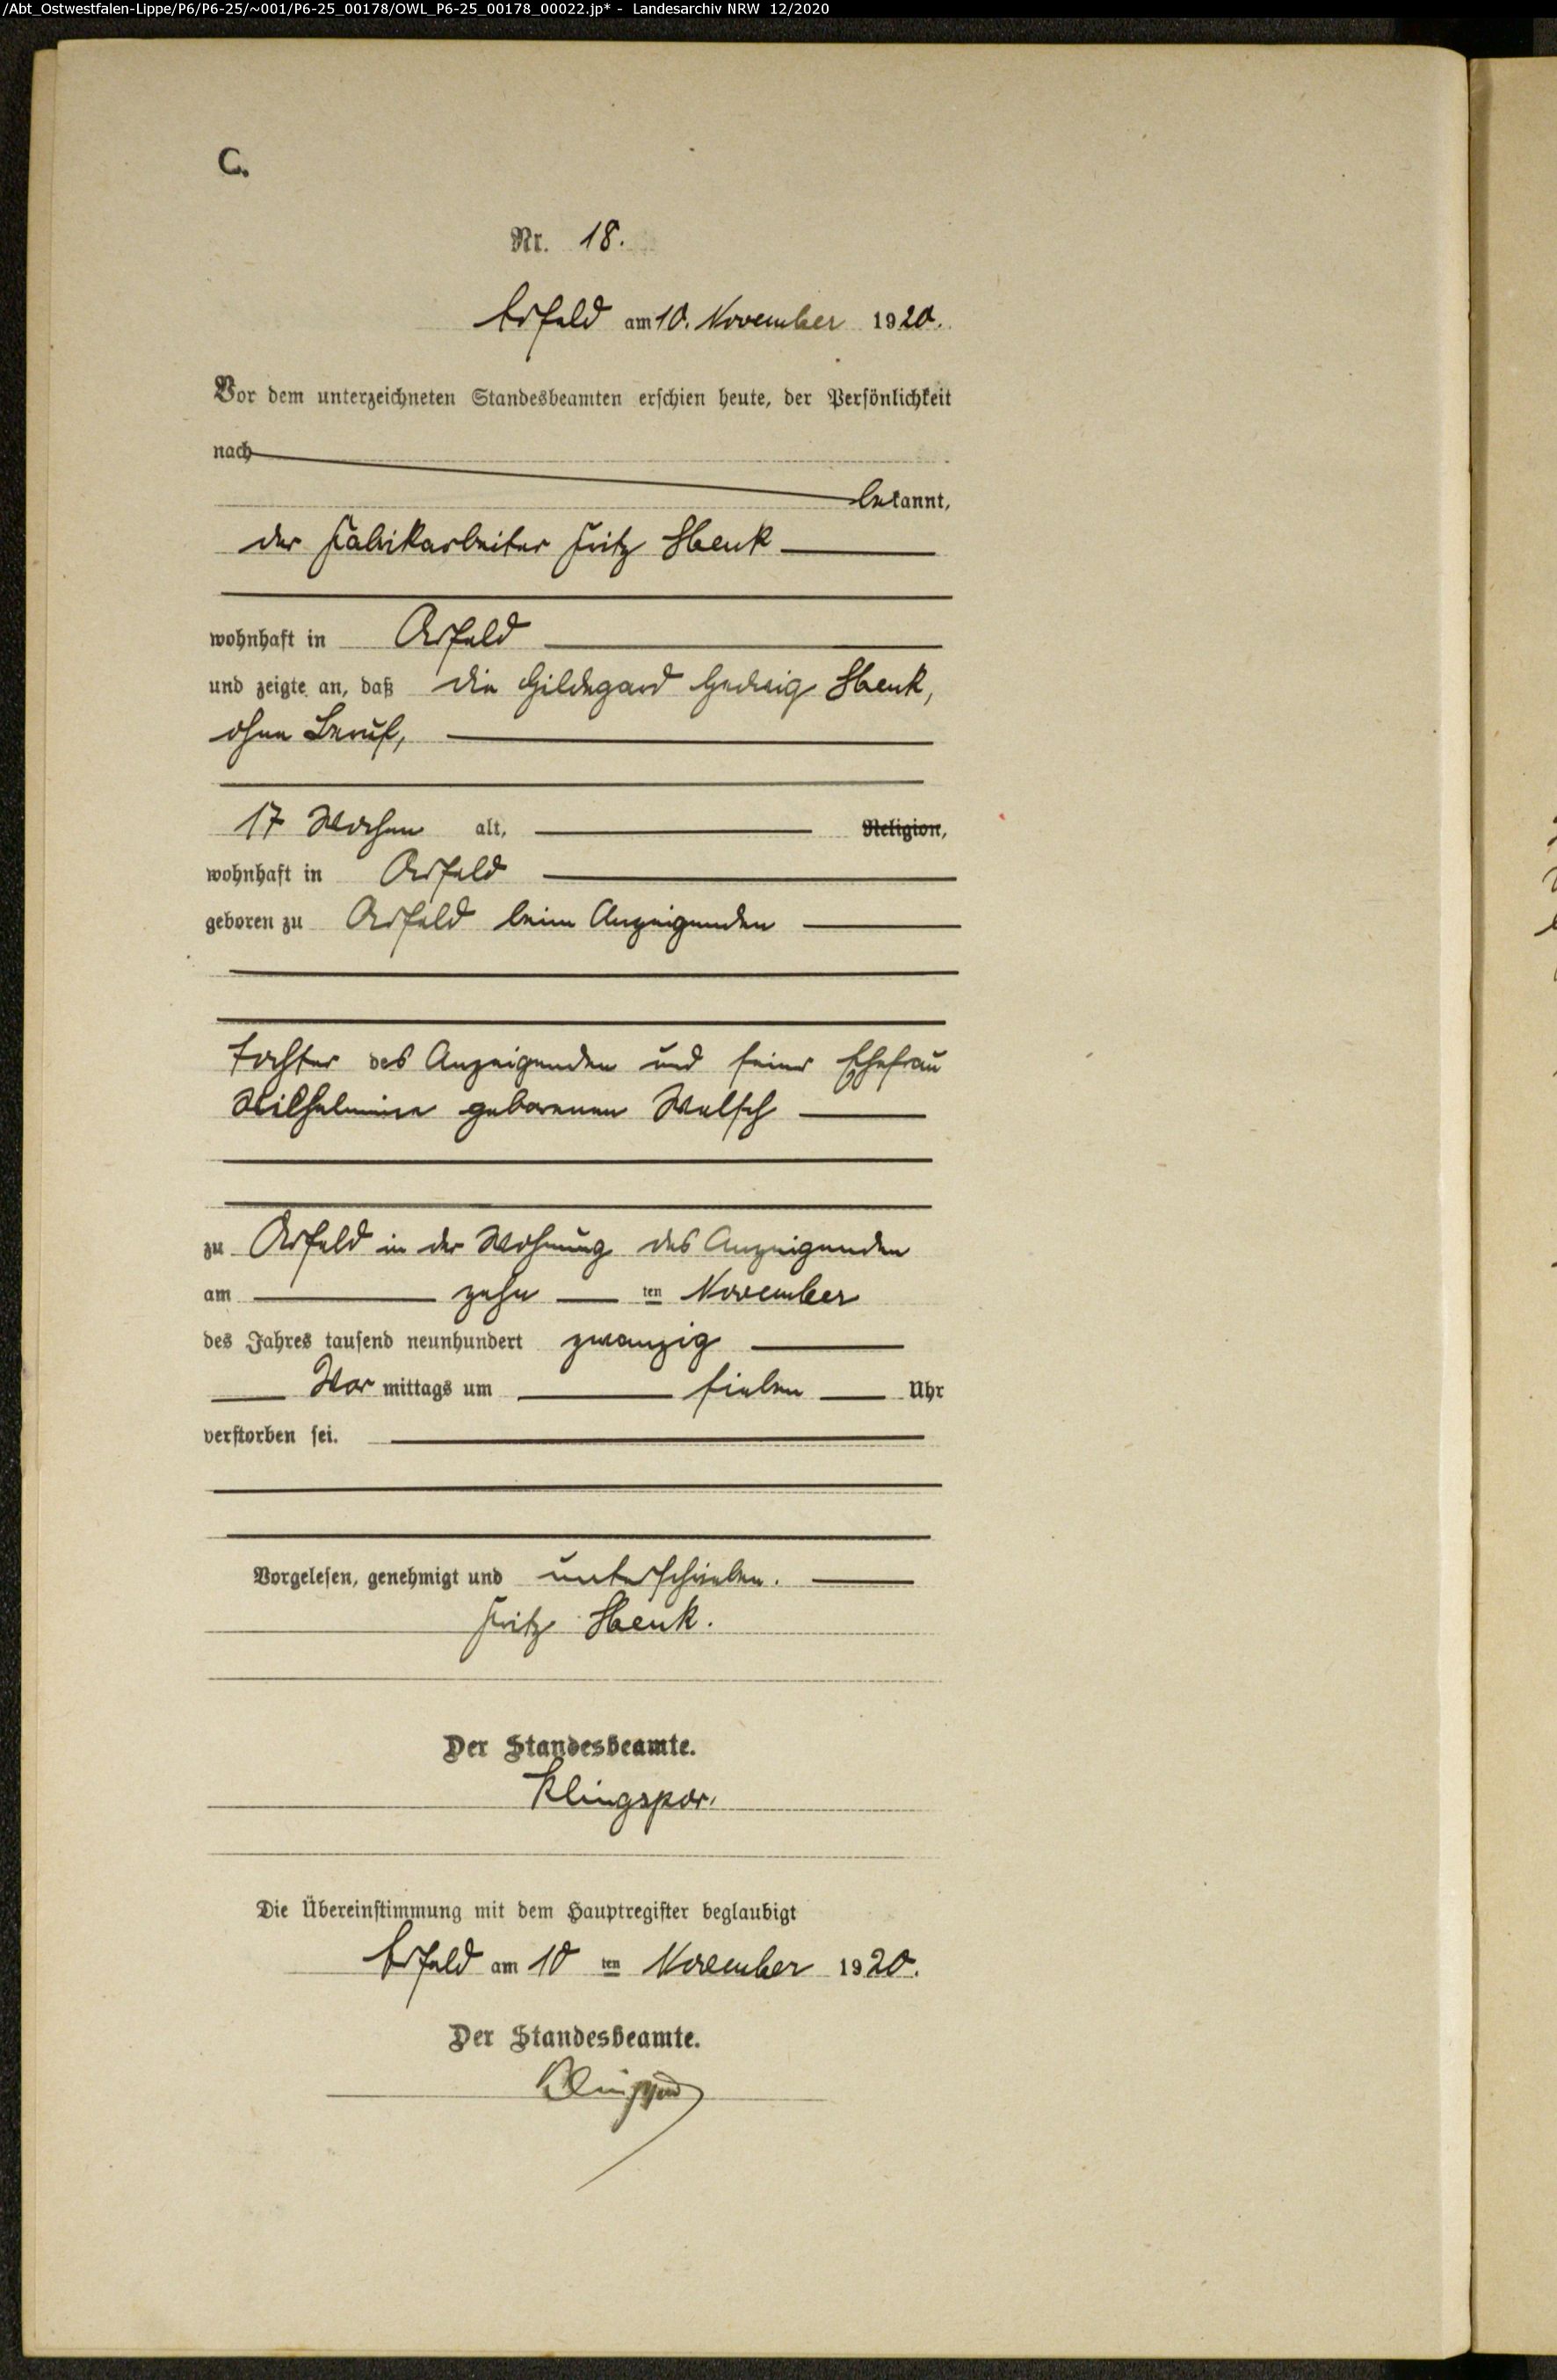 /Abt_Ostwestfalen-Lippe/P6/P6-25/~001/P6-25_00178/OWL_P6-25_00178_00022.jp* - Landesarchiv NRW 12/2020
C.
Nr. 18.
am 10. November 1920.
Vor dem unterzeichneten Standesbeamten erschien heute, der Persönlichkeit
nach
bekannt,
der Fabrikarbeiter Fritz Henk
wohnhaft in Asfeld
und zeigte an, daß die Hildegard Hedwig Henk,
ohne Beruf,
17 Wochen alt, Religion,
wohnhaft in Asfeld
geboren zu Asfeld beim Anzeigenden
Tochter des Anzeigenden und seiner Ehefrau
Wilhelmine geborenen Welsch
zu Asfeld in der Wohnung des Anzeigenden
am zehn ten November
des Jahres tausend neunhundert zwanzig
Vor mittags um sieben Uhr
verstorben sei.
Vorgelesen, genehmigt und unterschrieben.
Fritz Henk.
Der Standesbeamte.
Klingspor.
Die Übereinstimmung mit dem Hauptregister beglaubigt
am 10 ten November 1920.
Der Standesbeamte.
Klingspor